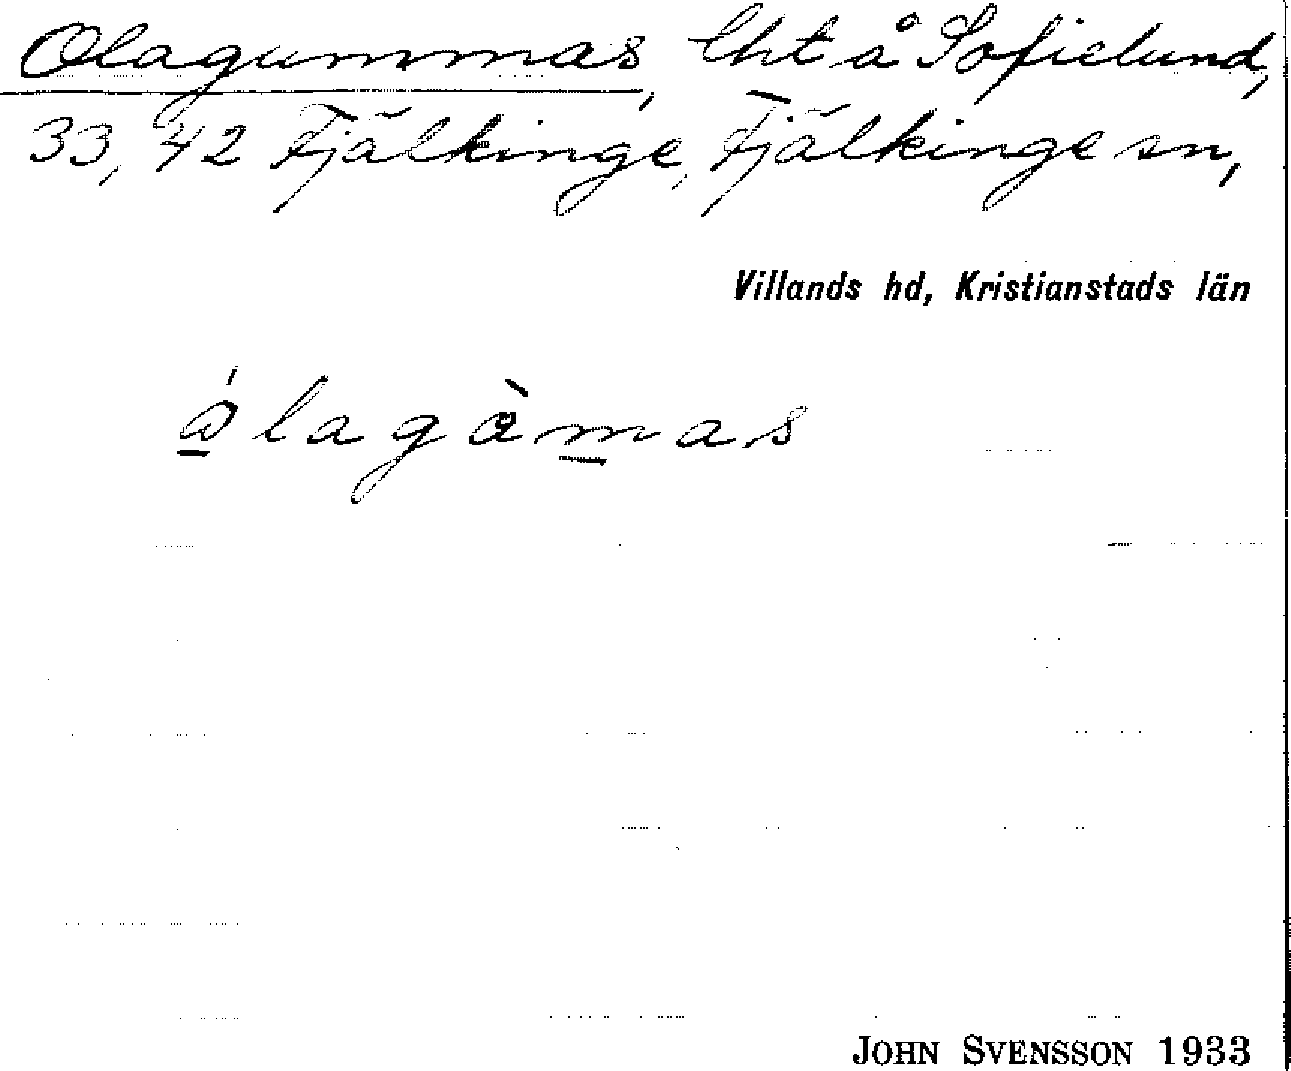 Olagummas, lht å Sofielund,
33, 42 Fjälkinge, Fjälkinge sn,
Villands hd, Kristianstads län
ålagàmas
JOHN SVENSSON 1933